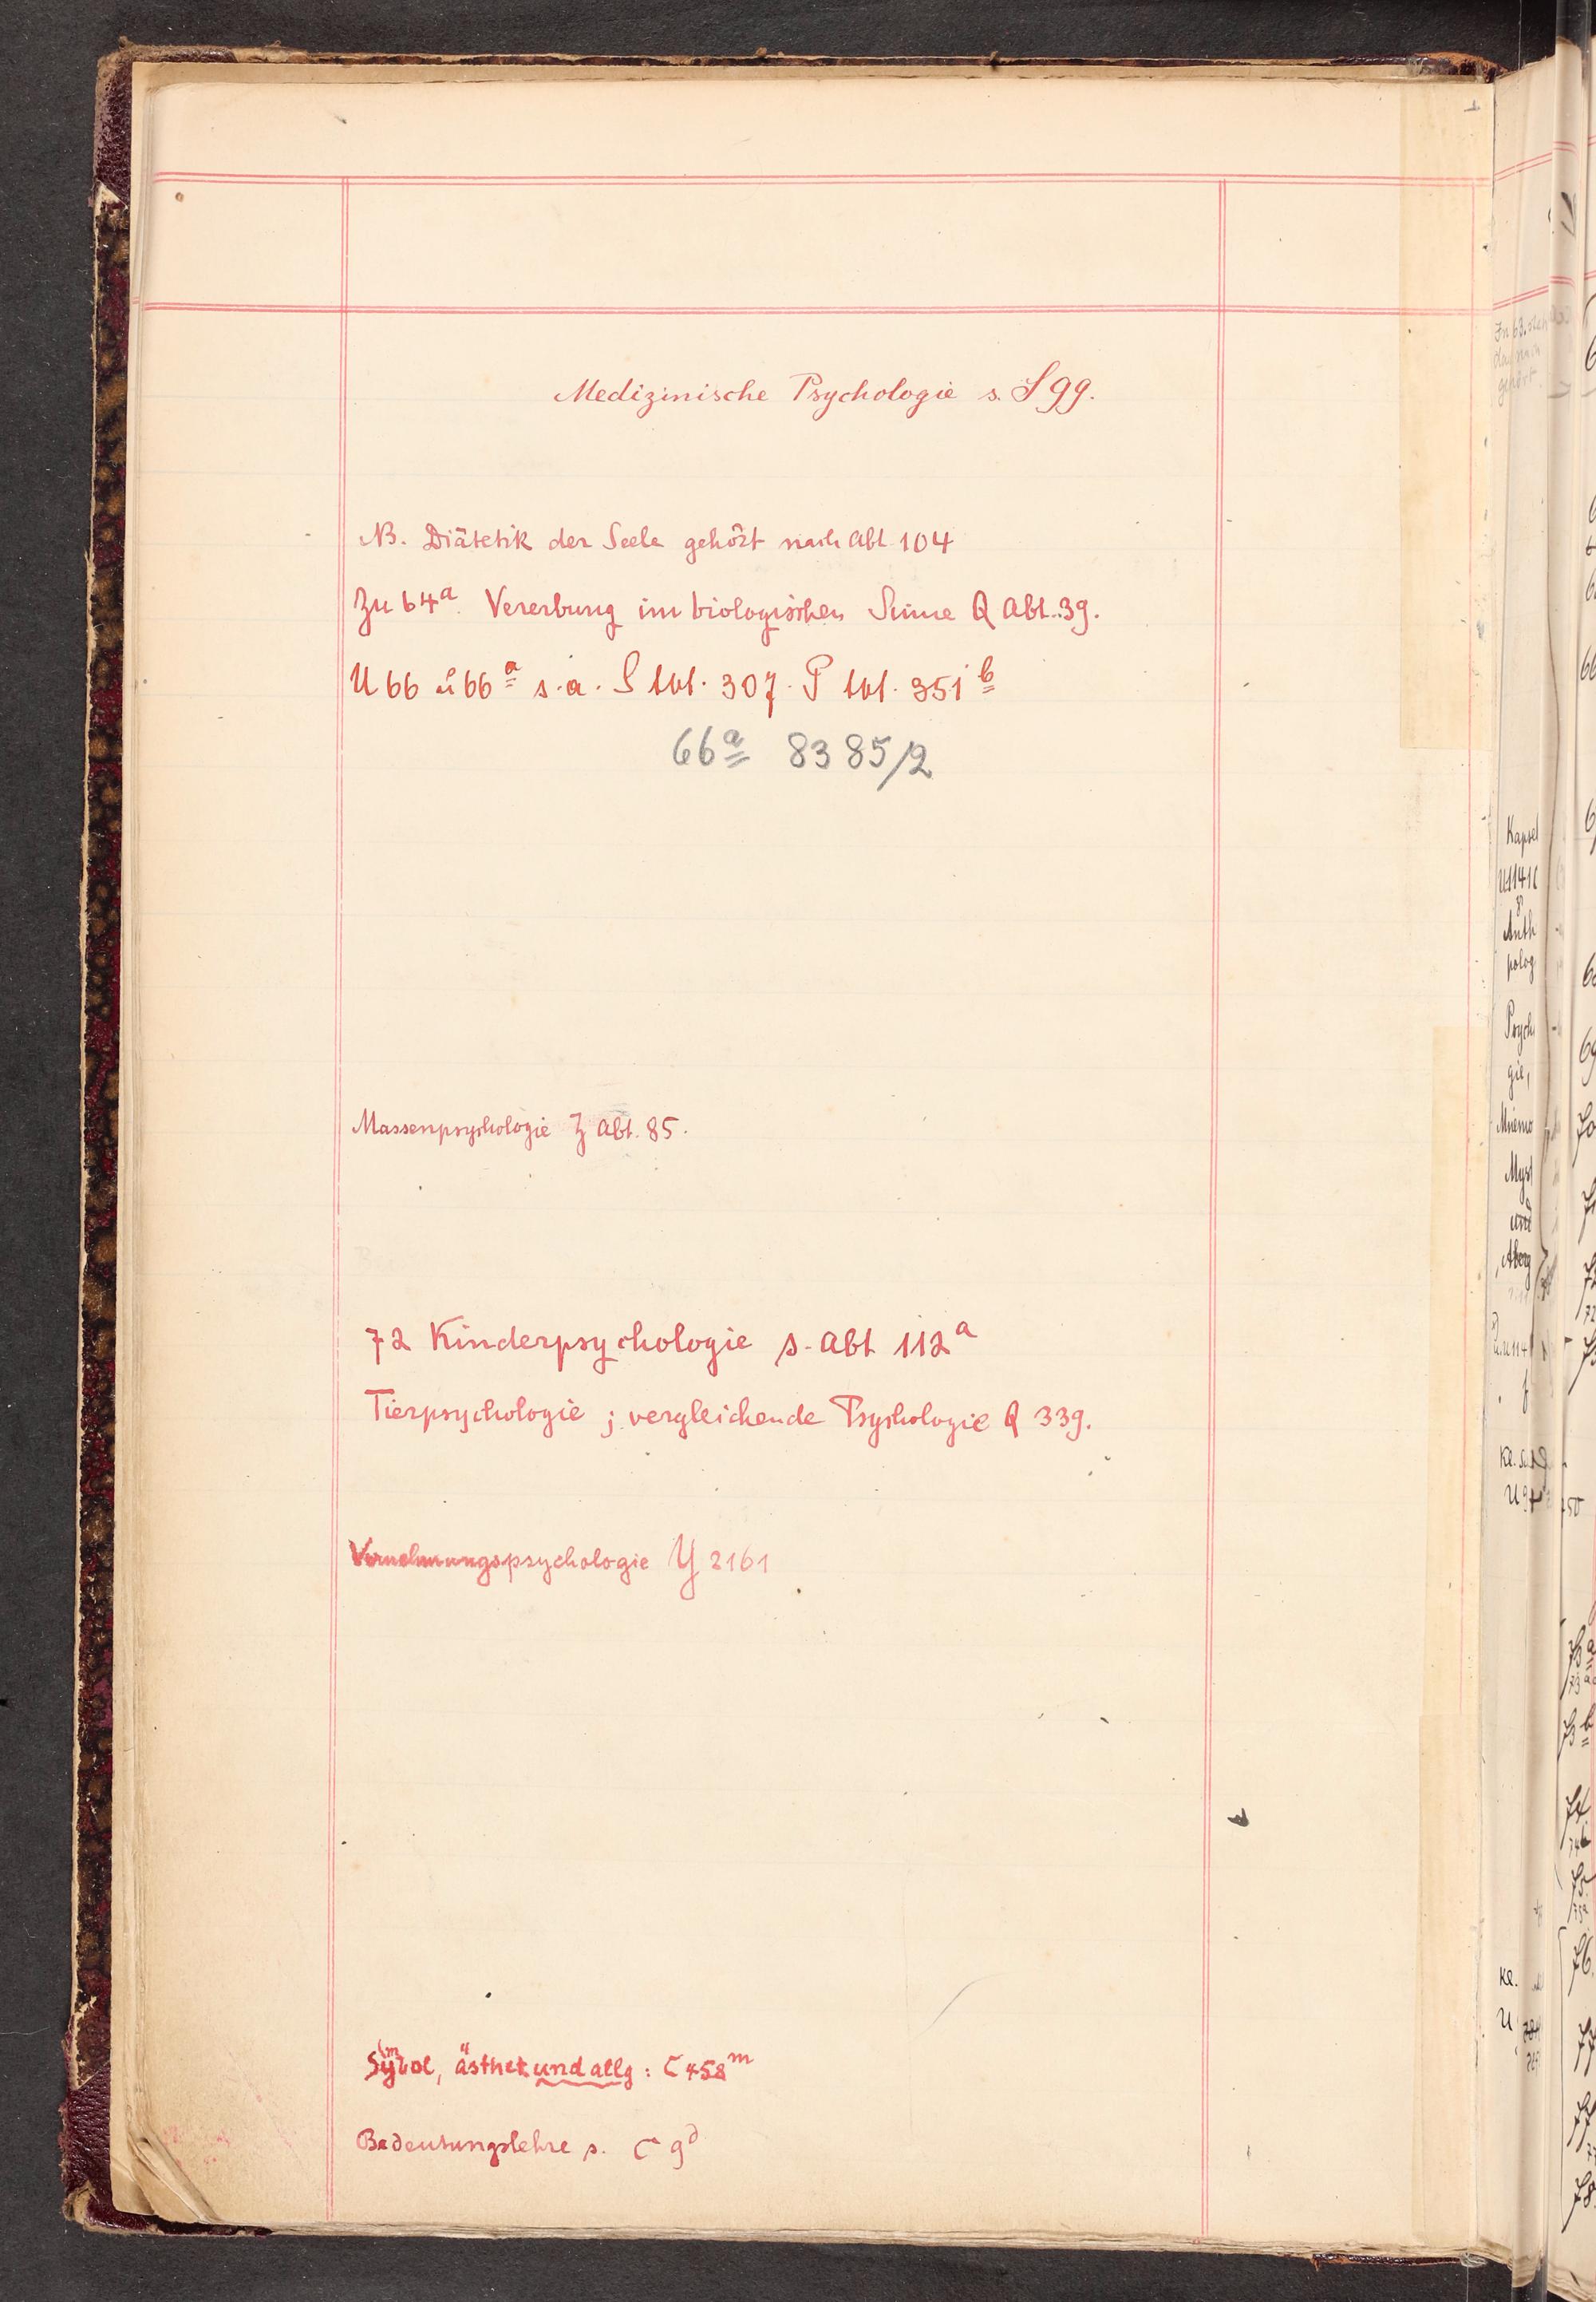 Medizinische Psychologie s. S 99.
NB. Diätetik der Seele gehört nach Abt 104
Zu 64ᵃ. Vererbung im biologischen Sinne Q Abt. 39.
U 66 u 66ᵃ s. a. S Abt. 307. P Abt. 351ᵇ
66ᵃ 8385/2
Massenpsychologie Z Abt. 85.
72 Kinderpsychologie s. Abt 112ᵃ
Tierpsychologie ; vergleichende Psychologie Q 339.
Vernehmungspsychologie Y 2161
Symbol, ästhet und allg : C 458ᵐ
Bedeutungslehre s. C 9ᵈ
Kapsel
Psych
gie,
Kl.
U